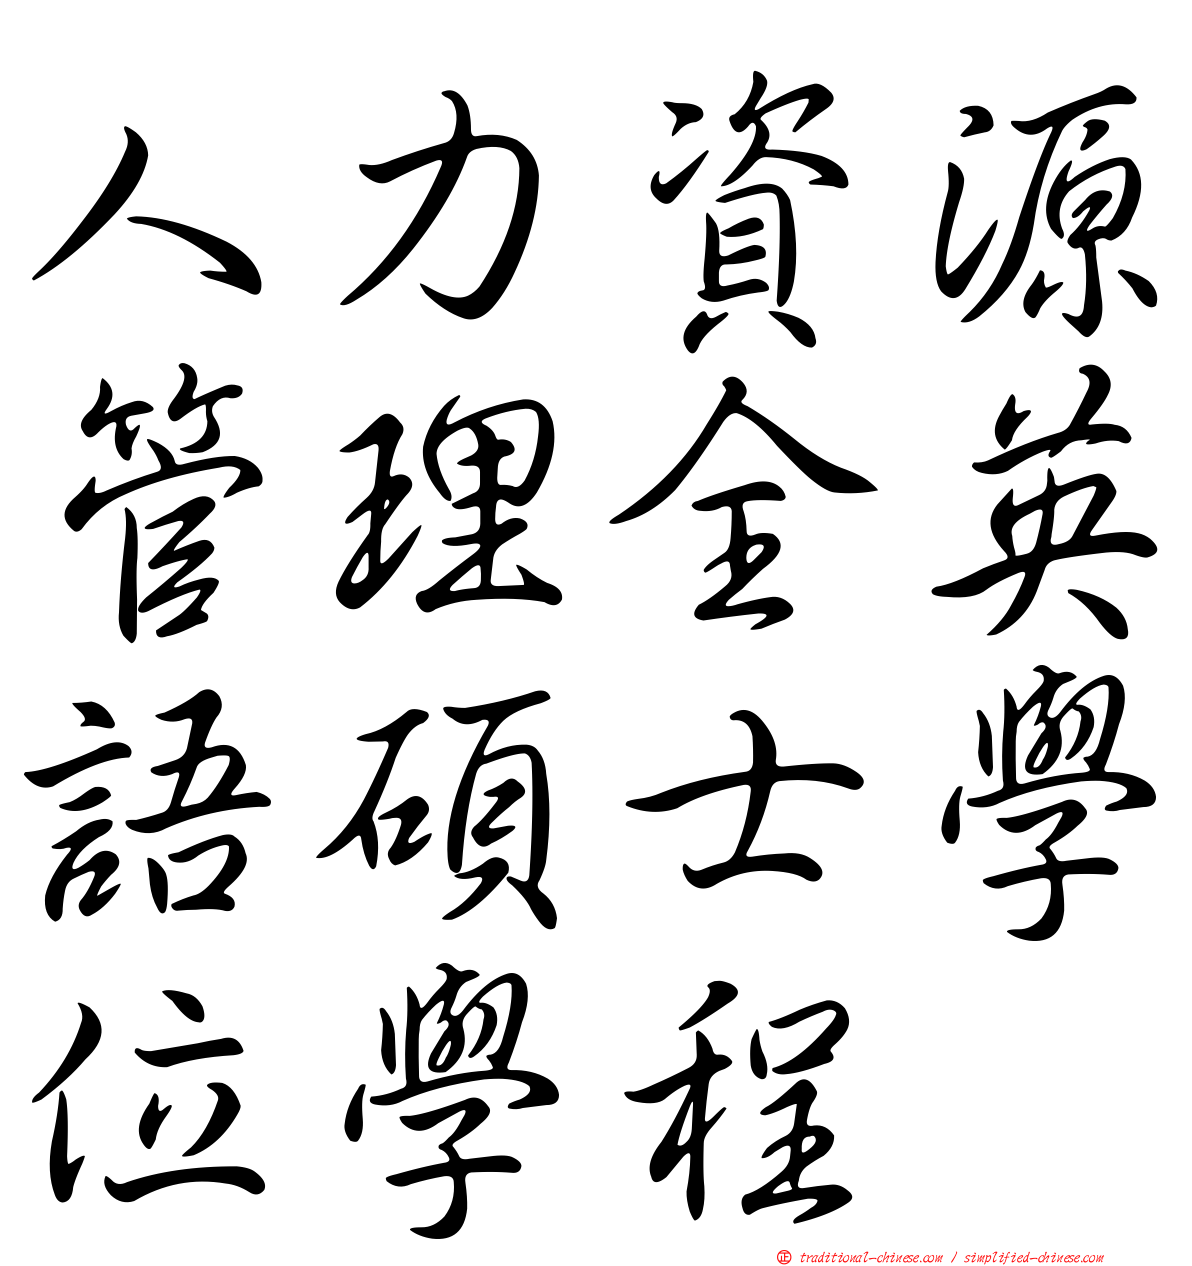 人力資源
管理全英
語碩士學
位學程
㊣ traditional-chinese.com / simplified-chinese.com